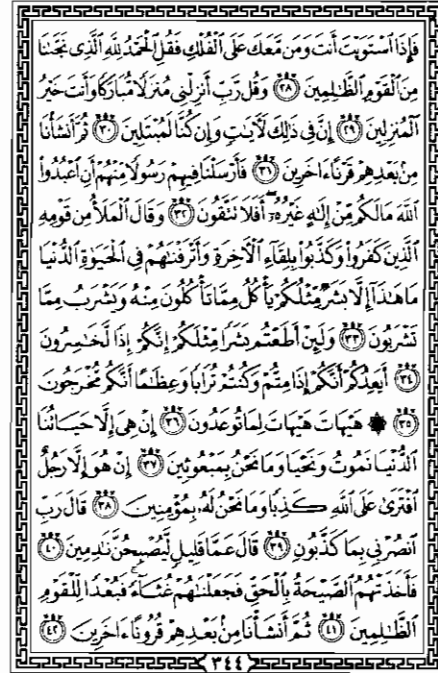 فَإِذَا ٱسْتَوَيْتَ أَنتَ وَمَن مَّعَكَ عَلَى ٱلْفُلْكِ فَقُلِ ٱلْحَمْدُ لِلَّهِ ٱلَّذِى نَجَّىٰنَا
مِنَ ٱلْقَوْمِ ٱلظَّٰلِمِينَ ٢٨ وَقُل رَّبِّ أَنزِلْنِى مُنزَلًا مُّبَارَكًا وَأَنتَ خَيْرُ
ٱلْمُنزِلِينَ ٢٩ إِنَّ فِى ذَٰلِكَ لَءَايَٰتٍ وَإِن كُنَّا لَمُبْتَلِينَ ٣٠ ثُمَّ أَنشَأْنَا
مِنۢ بَعْدِهِمْ قَرْنًا ءَاخَرِينَ ٣١ فَأَرْسَلْنَا فِيهِمْ رَسُولًا مِّنْهُمْ أَنِ ٱعْبُدُوا۟
ٱللَّهَ مَا لَكُم مِّنْ إِلَٰهٍ غَيْرُهُۥٓ أَفَلَا تَتَّقُونَ ٣٢ وَقَالَ ٱلْمَلَأُ مِن قَوْمِهِ
ٱلَّذِينَ كَفَرُوا۟ وَكَذَّبُوا۟ بِلِقَآءِ ٱلْءَاخِرَةِ وَأَتْرَفْنَٰهُمْ فِى ٱلْحَيَوٰةِ ٱلدُّنْيَا
مَا هَٰذَآ إِلَّا بَشَرٌ مِّثْلُكُمْ يَأْكُلُ مِمَّا تَأْكُلُونَ مِنْهُ وَيَشْرَبُ مِمَّا
تَشْرَبُونَ ٣٣ وَلَئِنْ أَطَعْتُم بَشَرًا مِّثْلَكُمْ إِنَّكُمْ إِذًا لَّخَٰسِرُونَ
٣٤ أَيَعِدُكُمْ أَنَّكُمْ إِذَا مِتُّمْ وَكُنتُمْ تُرَابًا وَعِظَٰمًا أَنَّكُم مُّخْرَجُونَ
٣٥ ۞ هَيْهَاتَ هَيْهَاتَ لِمَا تُوعَدُونَ ٣٦ إِنْ هِىَ إِلَّا حَيَاتُنَا
ٱلدُّنْيَا نَمُوتُ وَنَحْيَا وَمَا نَحْنُ بِمَبْعُوثِينَ ٣٧ إِنْ هُوَ إِلَّا رَجُلٌ
ٱفْتَرَىٰ عَلَى ٱللَّهِ كَذِبًا وَمَا نَحْنُ لَهُۥ بِمُؤْمِنِينَ ٣٨ قَالَ رَبِّ
ٱنصُرْنِى بِمَا كَذَّبُونِ ٣٩ قَالَ عَمَّا قَلِيلٍ لَّيُصْبِحُنَّ نَٰدِمِينَ ٤٠
فَأَخَذَتْهُمُ ٱلصَّيْحَةُ بِٱلْحَقِّ فَجَعَلْنَٰهُمْ غُثَآءً ۚ فَبُعْدًا لِّلْقَوْمِ
ٱلظَّٰلِمِينَ ٤١ ثُمَّ أَنشَأْنَا مِنۢ بَعْدِهِمْ قُرُونًا ءَاخَرِينَ ٤٢
٣٤٤